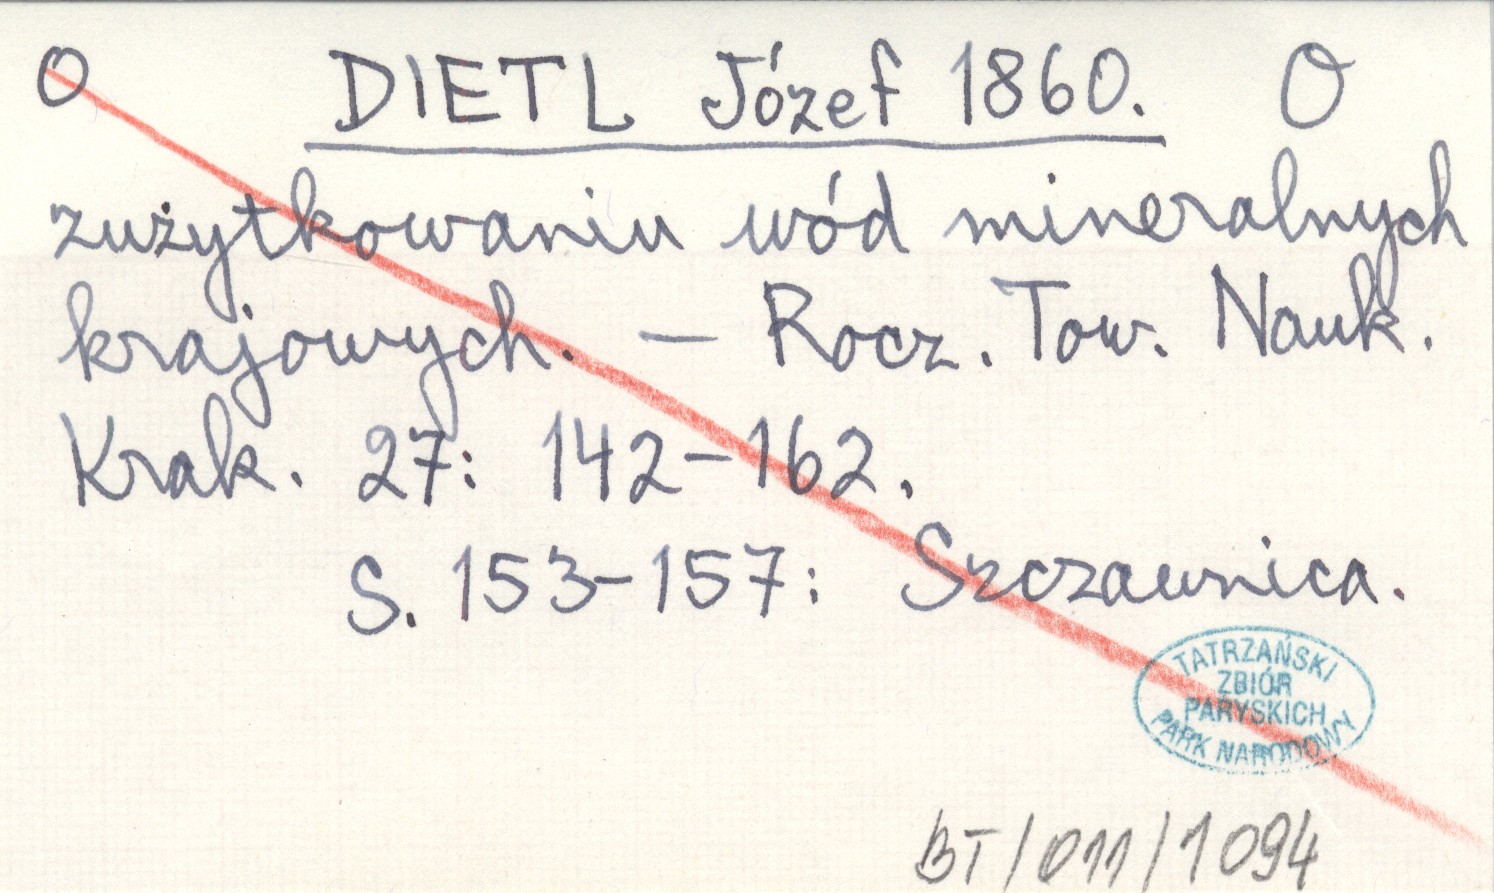 O DIETL Józef 1860. O
zużytkowaniu wód mineralnych
krajowych. — Rocz. Tow. Nauk.
Krak. 27: 142–162.
S. 153–157: Szczawnica.
TATRZAŃSKI
ZBIÓR
PARYSKICH
PARK NARODOWY
BT/011/1094